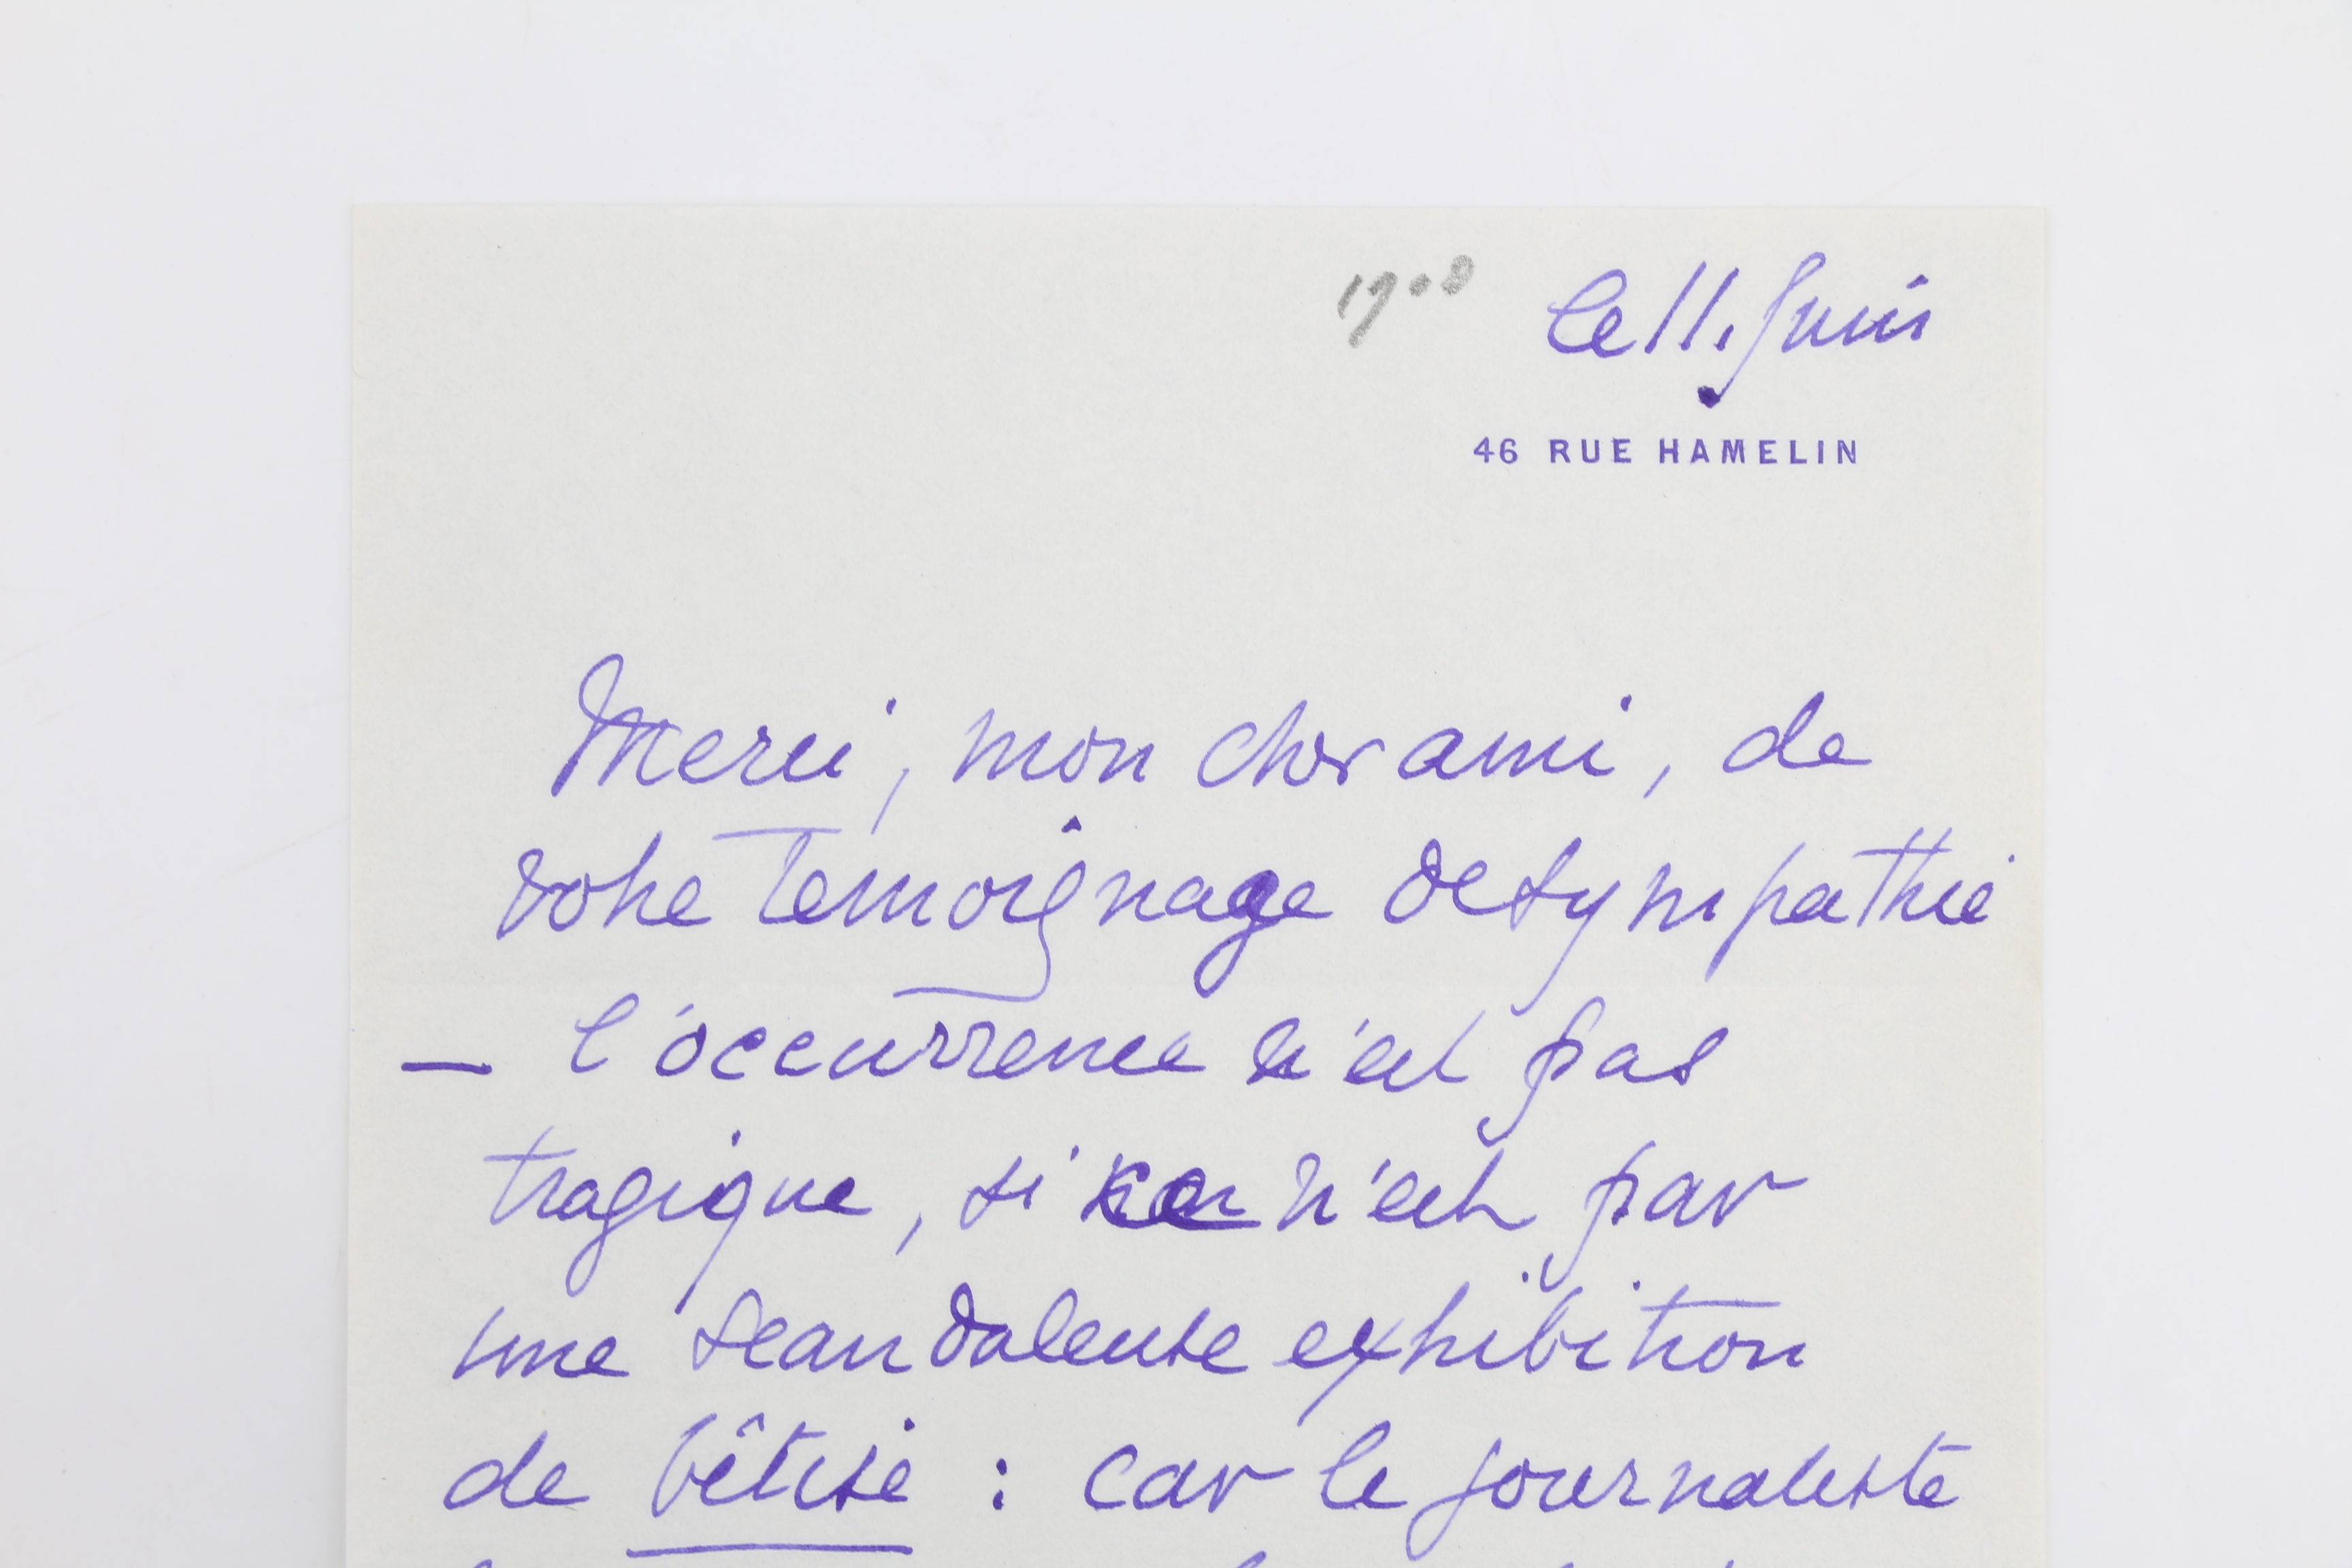 le 11. Juin
46 RUE HAMELIN
Merci, mon cher ami, de
votre temoignage de sympathie
— l'occurrence n'est pas
tragique, si n'est par
une scandaleuse exhibition
de bêtise : car le journaliste